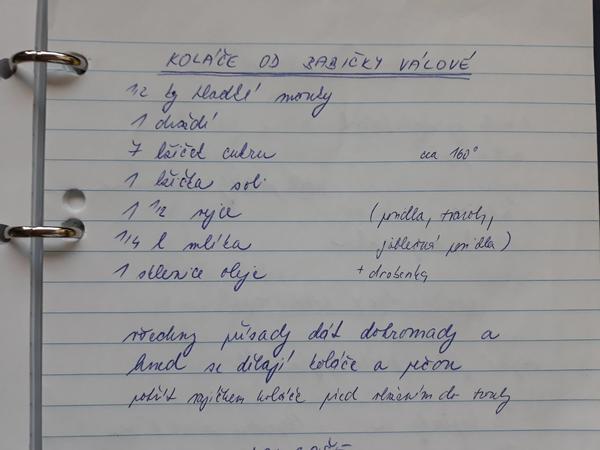 KOLÁČE OD BABIČKY VÁLOVÉ
1/2 kg hladké mouky
1 droždí
7 lžiček cukru
na 160°
1 lžička soli
1 1/2 vejce
(povidla, tvaroh,
1/4 l mléka
jablečná povidla)
1 sklenice oleje
+ drobenka
všechny přísady dát dohromady a
hned se dělají koláče a pečou
potřít vajíčkem koláče před vložením do trouby